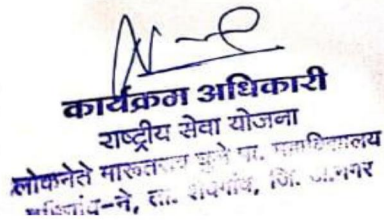 कार्यक्रम अधिकारी
राष्ट्रीय सेवा योजना
लोकनेते मारूतराव घुले पा. महाविद्यालय
-ने, ता. शेवगांव, जि. अ.नगर